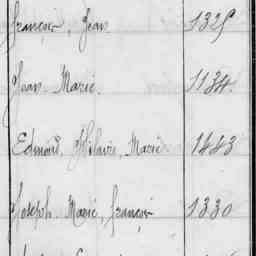 françois, Jean 1325
Jean Marie 1134
Edmond, Hilaire, Marie 1443
Joseph, Marie, françois 1330